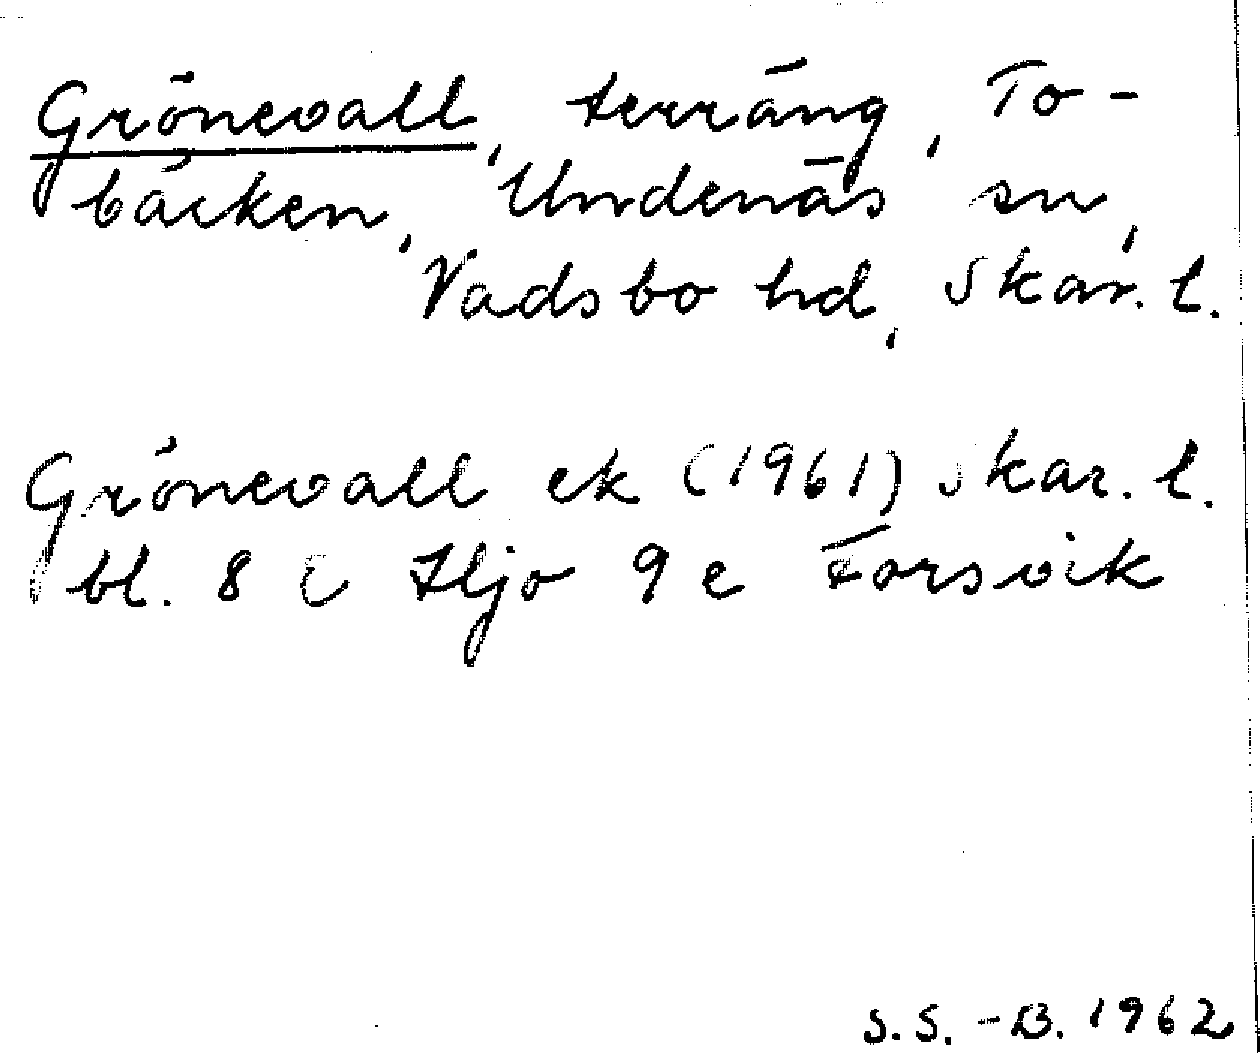 Grönevall, terräng, To-
bäcken, Undenäs sn,
Vadsbo hd, Skar. l.
Grönevall ek (1961) Skar. l.
bl. 8 E Hjo 9 e Forsvik
S.S.-B. 1962